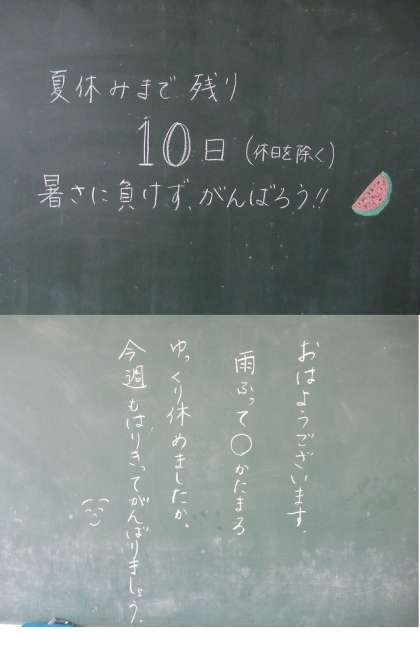 夏休みまで 残り
10日 (休日を除く)
暑さに負けず、がんばろう!!
おはようございます。
雨ふって〇かたまる
ゆっくり休めましたか。
今週もはりきってがんばりましょう。